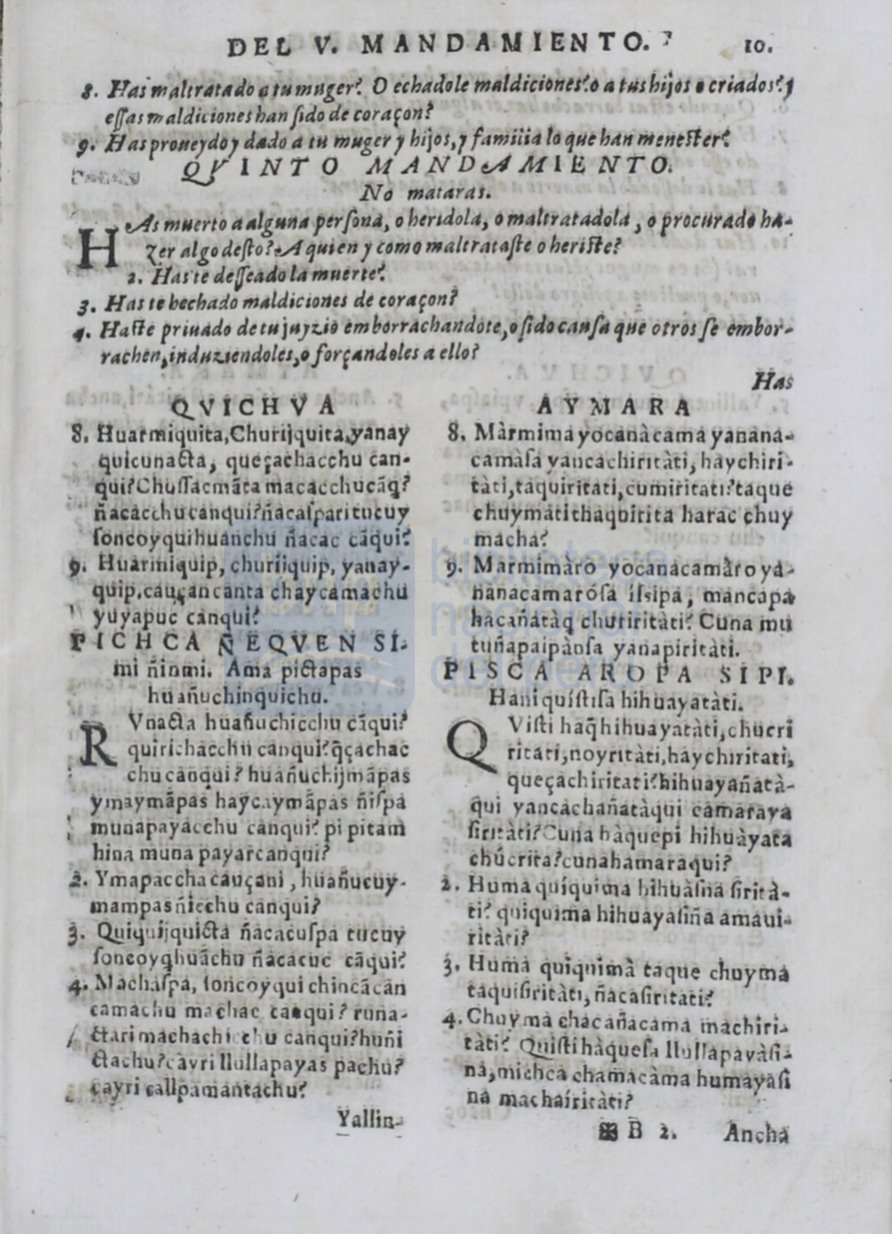 DEL V. MANDAMIENTO. 10.
8. Has maltratado a tu muger? O echadole maldiciones? o a tus hijos o criados? y
essas maldiciones han sido de coraçon?
9. Has proueydo y dado a tu muger y hijos, y familia lo que han menester?
QVINTO MANDAMIENTO.
No mataras.
HAs muerto a alguna persona, o heridola, o maltratadola, o procurado ha-
zer algo desto? A quien y como maltrataste o heriste?
2. Has te desseado la muerte?
3. Has te hechado maldiciones de coraçon?
4. Haste priuado de tu juyzio emborrachandote, o sido causa que otros se embor-
rachen, induziendoles, o forçandoles a ello?
Has
QVICHVA
8. Huarmiquita, Churijquita, yanay
quicunacta, queçachacchu can-
qui? Chussacmãta macacchu cãq̃?
ñacacchu canqui? ñacaspari tucuy
soncoyquihuanchu ñacac cãqui?
9. Huarmiquip, churiiquip, yanay-
quip, cauçancanta chaycamachu
yuyapuc canqui?
PICHCA ÑEQVEN SI-
mi ñinmi. Ama pictapas
huañuchinquichu.
RVnacta huañuchicchu cãqui?
quirichacchu canqui? q̃çachac
chu canqui? huañuchijmãpas
ymaymãpas haycaymãpas ñispa
munapayacchu canqui? pi pitam
hina muna payarcanqui?
2. Ymapaccha cauçani, huañucuy-
mampas ñicchu canqui?
3. Quiquijquicta ñacacuspa tucuy
soncoyq̃huãchu ñacacuc cãqui?
4. Machaspa, soncoyqui chincãcan
camachu machac canqui? runa-
ctari machachicchu canqui? huñi
ctachu? cayri llullapayas pachu?
cayri callpamantachu?
Yallin-
AYMARA
8. Màrmima yocanàcama yanana-
camàsa yancachiritàti, haychiri-
tàti, taquiritati, cumiritati? taque
chuymatithaquirita harac chuy
macha?
9. Marmimàro yocanacamàro ya-
nanacamarósa issipa, mancapa
hacañatàq̃ chutiritàti? Cuna mu
tuñapaipànsa yanapiritàti.
PISCA AROPA SIPI.
Hani quístisa hihuayatàti.
QVisti haq̃ hihuayatàti, chucri
ritati, noyritàti, haychiritati,
queçachiritati? hihuayañatà-
qui yancachañatàqui camaraya
siritàti? Cuna hàquepi hihuàyata
chúcrita? cunahamaraqui?
2. Huma quíquima hihuàsna siritá-
ti? quiquima hihuayasiña amaui-
ritàti?
3. Huma quiquimà taque chuyma
taquisiritàti, ñacasiritati?
4. Chuyma chacañacama machiri-
tàti? Quisti hàquesa llullapayàsi-
na, michca chamacàma humayasi
na machaíritàti?
B 2. Ancha